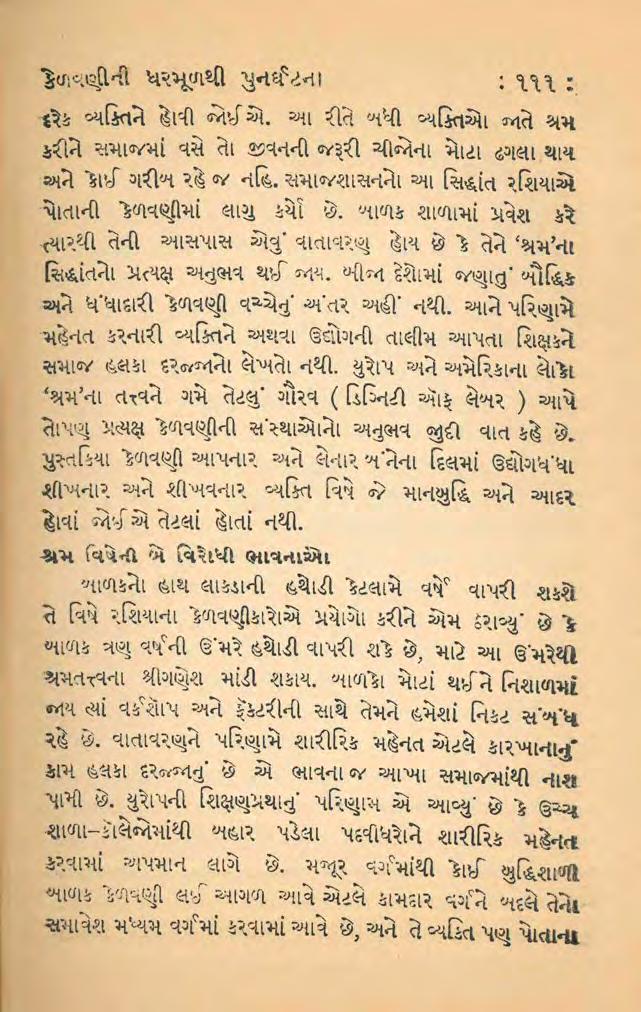 કેળવણીની ધરમૂળથી પુનર્ઘટના : ૧૧૧ :
દરેક વ્યક્તિને હોવી જોઈએ. આ રીતે બધી વ્યક્તિઓ જાતે શ્રમ
કરીને સમાજમાં વસે તો જીવનની જરૂરી ચીજોના મોટા ઢગલા થાય
અને કોઈ ગરીબ રહે જ નહિ. સમાજશાસનનો આ સિદ્ધાંત રશિયાએ
પોતાની કેળવણીમાં લાગુ કર્યો છે. બાળક શાળામાં પ્રવેશ કરે
ત્યારથી તેની આસપાસ એવું વાતાવરણ હોય છે કે તેને ‘શ્રમ’ના
સિદ્ધાંતનો પ્રત્યક્ષ અનુભવ થઈ જાય. બીજા દેશોમાં જણાતું બૌદ્ધિક
અને ધંધાદારી કેળવણી વચ્ચેનું અંતર અહીં નથી. આને પરિણામે
મહેનત કરનારી વ્યક્તિને અથવા ઉદ્યોગની તાલીમ આપતા શિક્ષકને
સમાજ હલકા દરજ્જાનો લેખતો નથી. યુરોપ અને અમેરિકાના લોકો
‘શ્રમ’ના તત્ત્વને ગમે તેટલું ગૌરવ ( ડિગ્નિટી ઑફ લેબર ) આપે
તોપણ પ્રત્યક્ષ કેળવણીની સંસ્થાઓનો અનુભવ જુદી વાત કહે છે.
પુસ્તકિયા કેળવણી આપનાર અને લેનાર બંનેના દિલમાં ઉદ્યોગધંધા
શીખનાર અને શીખવનાર વ્યક્તિ વિષે જે માનબુદ્ધિ અને આદર
હોવાં જોઈએ તેટલાં હોતાં નથી.
શ્રમ વિષેની બે વિરોધી ભાવનાઓ
બાળકનો હાથ લાકડાની હથોડી કેટલામે વર્ષે વાપરી શકશે
તે વિષે રશિયાના કેળવણીકારોએ પ્રયોગો કરીને એમ ઠરાવ્યું છે કે
બાળક ત્રણ વર્ષની ઉંમરે હથોડી વાપરી શકે છે, માટે આ ઉંમરેથી
શ્રમતત્ત્વના શ્રીગણેશ માંડી શકાય. બાળકો મોટાં થઈને નિશાળમાં
જાય ત્યાં વર્કશોપ અને ફૅક્ટરીની સાથે તેમને હમેશાં નિકટ સંબંધ
રહે છે. વાતાવરણને પરિણામે શારીરિક મહેનત એટલે કારખાનાનું
કામ હલકા દરજ્જાનું છે એ ભાવના જ આખા સમાજમાંથી નાશ
પામી છે. યુરોપની શિક્ષણપ્રથાનું પરિણામ એ આવ્યું છે કે ઉચ્ચ
શાળા–કૉલેજોમાંથી બહાર પડેલા પદવીધરોને શારીરિક મહેનત
કરવામાં અપમાન લાગે છે. મજૂર વર્ગમાંથી કોઈ બુદ્ધિશાળી
બાળક કેળવણી લઈ આગળ આવે એટલે કામદાર વર્ગને બદલે તેનો
સમાવેશ મધ્યમ વર્ગમાં કરવામાં આવે છે, અને તે વ્યક્તિ પણ પોતાના